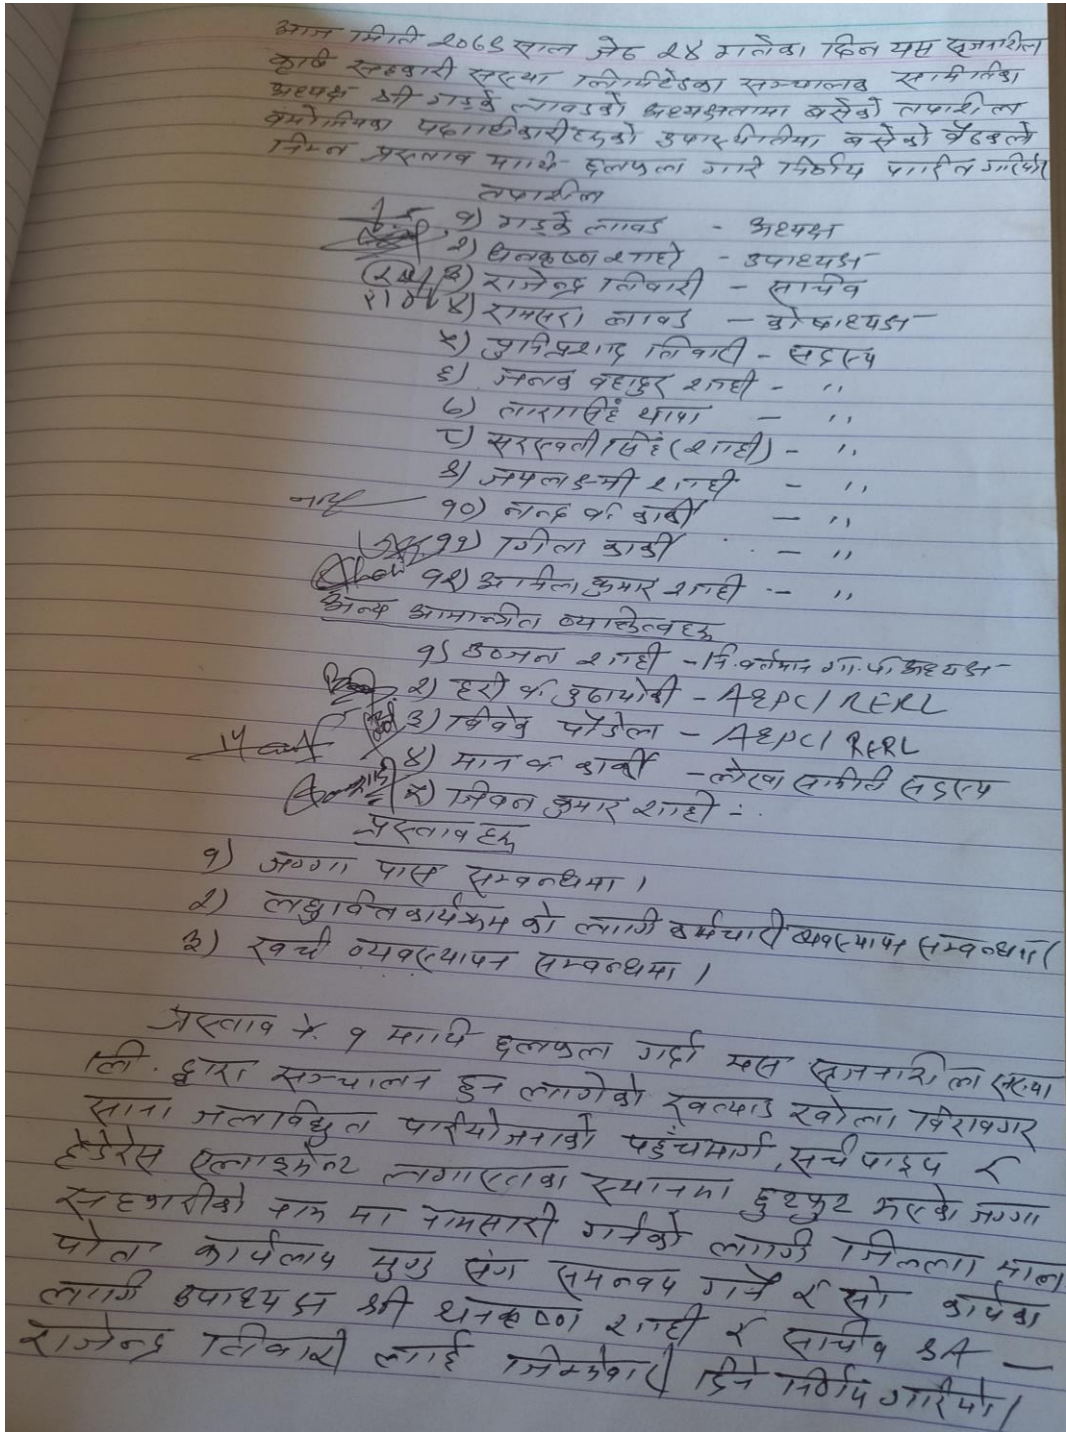 आज मिति २०७९ साल जेठ २४ गतेका दिन यस सृजनशिल
कृषि सहकारी सस्था लिमिटेडका सञ्चालक समितिका
अध्यक्ष श्री गडके लावडको अध्यक्षतामा बसेको तपाशील
बमोजिमका पदाधिकारीहरुको उपस्थितिमा बसेको बैठकले
निम्न प्रस्ताव माथि छलफल गरि निर्णय पारित गरियो।
तपाशील
१) गडके लावड - अध्यक्ष
२) धनकृष्ण शाही - उपाध्यक्ष
३) राजेन्द्र तिवारी - सचिव
४) रामसरा लावड - कोषाध्यक्ष
५) तिवारी - सदस्य
६) जनक वहादुर शाही - ,,
७) तारासिंह थापा - ,,
८) सरस्वती सिंह (शाही) - ,,
९) जयलक्ष्मी शाही - ,,
१०) नन्द व. कार्की - ,,
११) गिता कार्की - ,,
१२) कुमार शाही - ,,
अन्य आमान्त्रीत व्याक्तित्वहरु
१) शाही - नि.वर्तमान गा.पा.अध्यक्ष
२) हरी व. बुढाथोकी - AEPC/RERL
३) विवेक पौडेल - AEPC/RERL
४) मान व. कार्की - लेखा समिती सदस्य
५) जिवन कुमार शाही -
प्रस्तावहरु
१) जग्गा पास सम्वन्धमा।
२) लघुवित्त कार्यक्रम को लागी कर्मचारी ब्यवस्थापन सम्वन्धमा।
३) खर्च व्यवस्थापन सम्वन्धमा।
प्रस्ताव नं. १ माथि छलफल गर्दा यस सृजनाशिल सस्था
लि. द्वारा सञ्चालन हुन लागेको ख्वत्याड खोला विरावगर
साना जलविद्युत परियोजनाको पहुँचमार्ग, सर्च पाइप र
हेडरेस एलाइमेन्ट लगाएतका स्थानमा छुटफुट भएको जग्गा
सहकारीको नाम मा नामसारी गर्नको लागी जिल्ला माल
पोत कार्यलाय मुगु संग समन्वय गर्ने र सो कार्यका
लागि उपाध्यक्ष श्री धनकृष्ण शाही र सचिव श्री -
राजेन्द्र तिवारी लाई जिम्मेवारी दिने निर्णय गारियो।